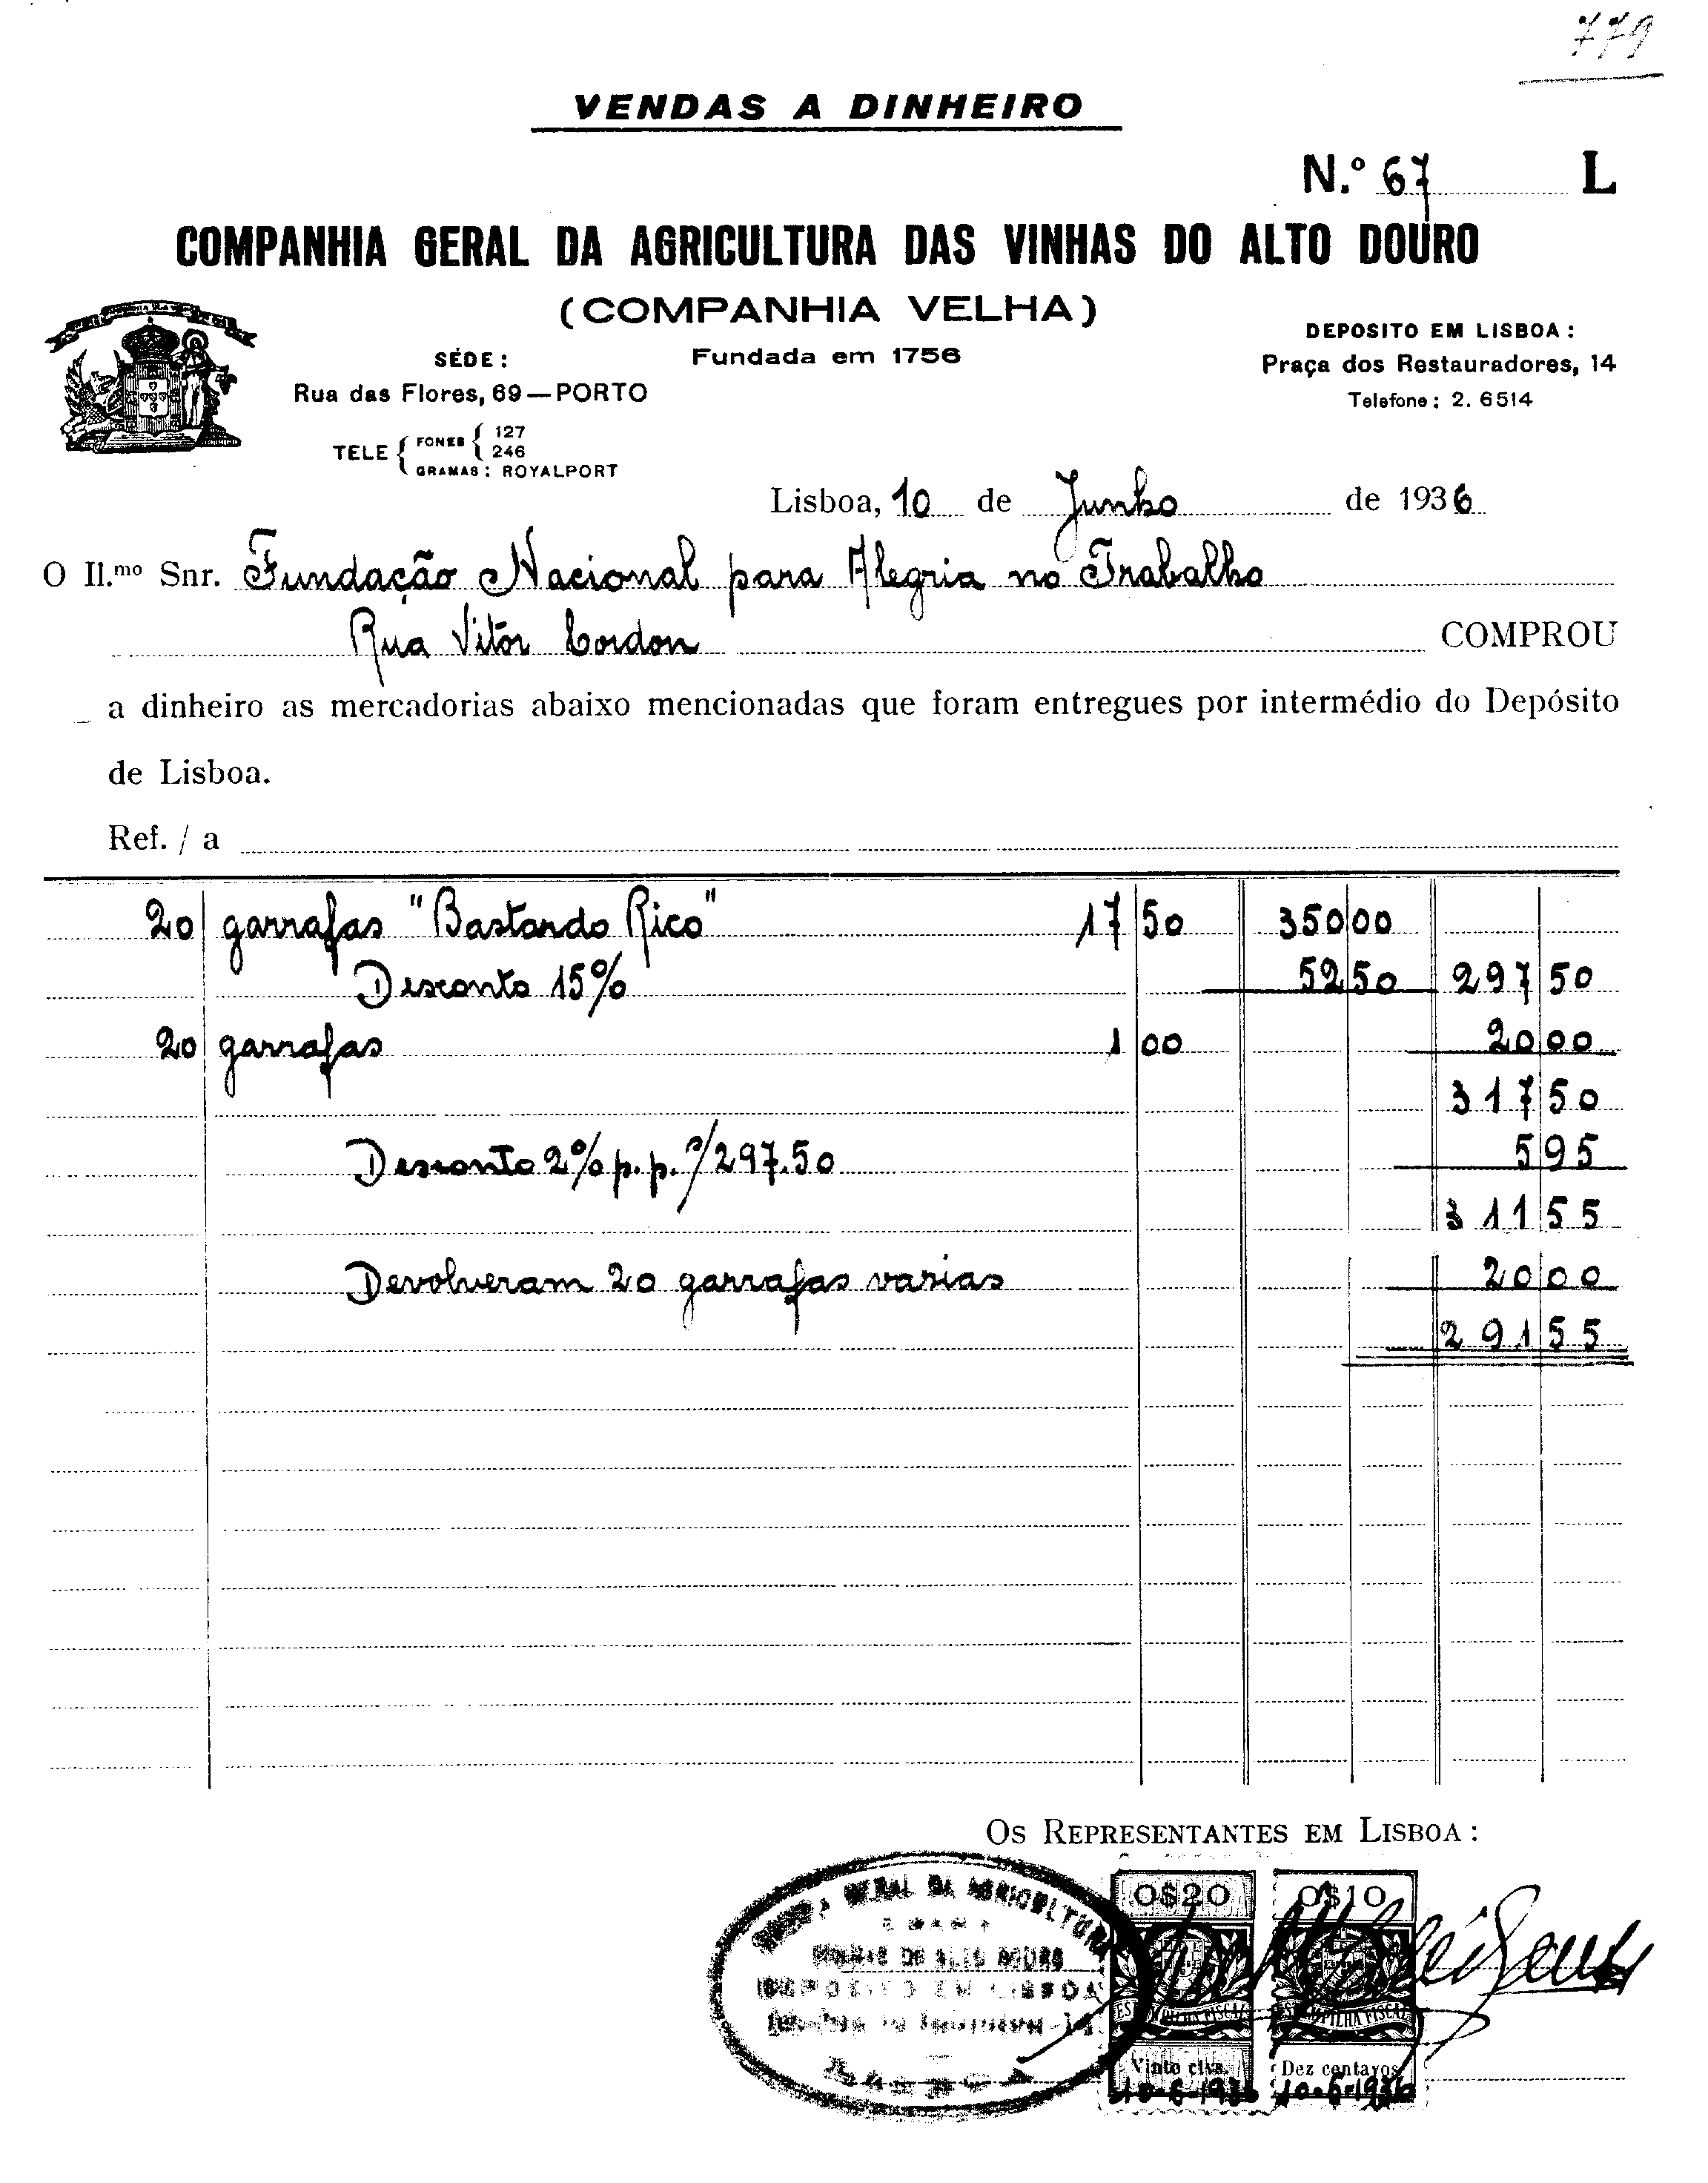 779
VENDAS A DINHEIRO
N.º 67 L
COMPANHIA GERAL DA AGRICULTURA DAS VINHAS DO ALTO DOURO
(COMPANHIA VELHA)
Fundada em 1756
SÉDE:
Rua das Flores, 69—PORTO
TELE { FONES { 127
246
GRAMAS: ROYALPORT
DEPOSITO EM LISBOA:
Praça dos Restauradores, 14
Telefone: 2. 6514
Lisboa, 10 de Junho de 1936
O Il.mo Snr. Fundação Nacional para Alegria no Trabalho
Rua Vitor Cordon COMPROU
a dinheiro as mercadorias abaixo mencionadas que foram entregues por intermédio do Depósito
de Lisboa.
Ref. / a
20 garrafas "Bastardo Rico" 17 50 350 00
Desconto 15% 52 50 297 50
20 garrafas 1 00 20 00
317 50
Desconto 2% p. p. s/297.50 5 95
311 55
Devolveram 20 garrafas varias 20 00
291 55
OS REPRESENTANTES EM LISBOA:
GERAL DA AGRICULTURA
VINHAS DO ALTO DOURO
DEPOSITO EM LISBOA
LISBOA
0$20 0$10
ESTAMPILHA FISCAL ESTAMPILHA FISCAL
Vinte ctvs. Dez centavos
10-6-1936 10-6-1936